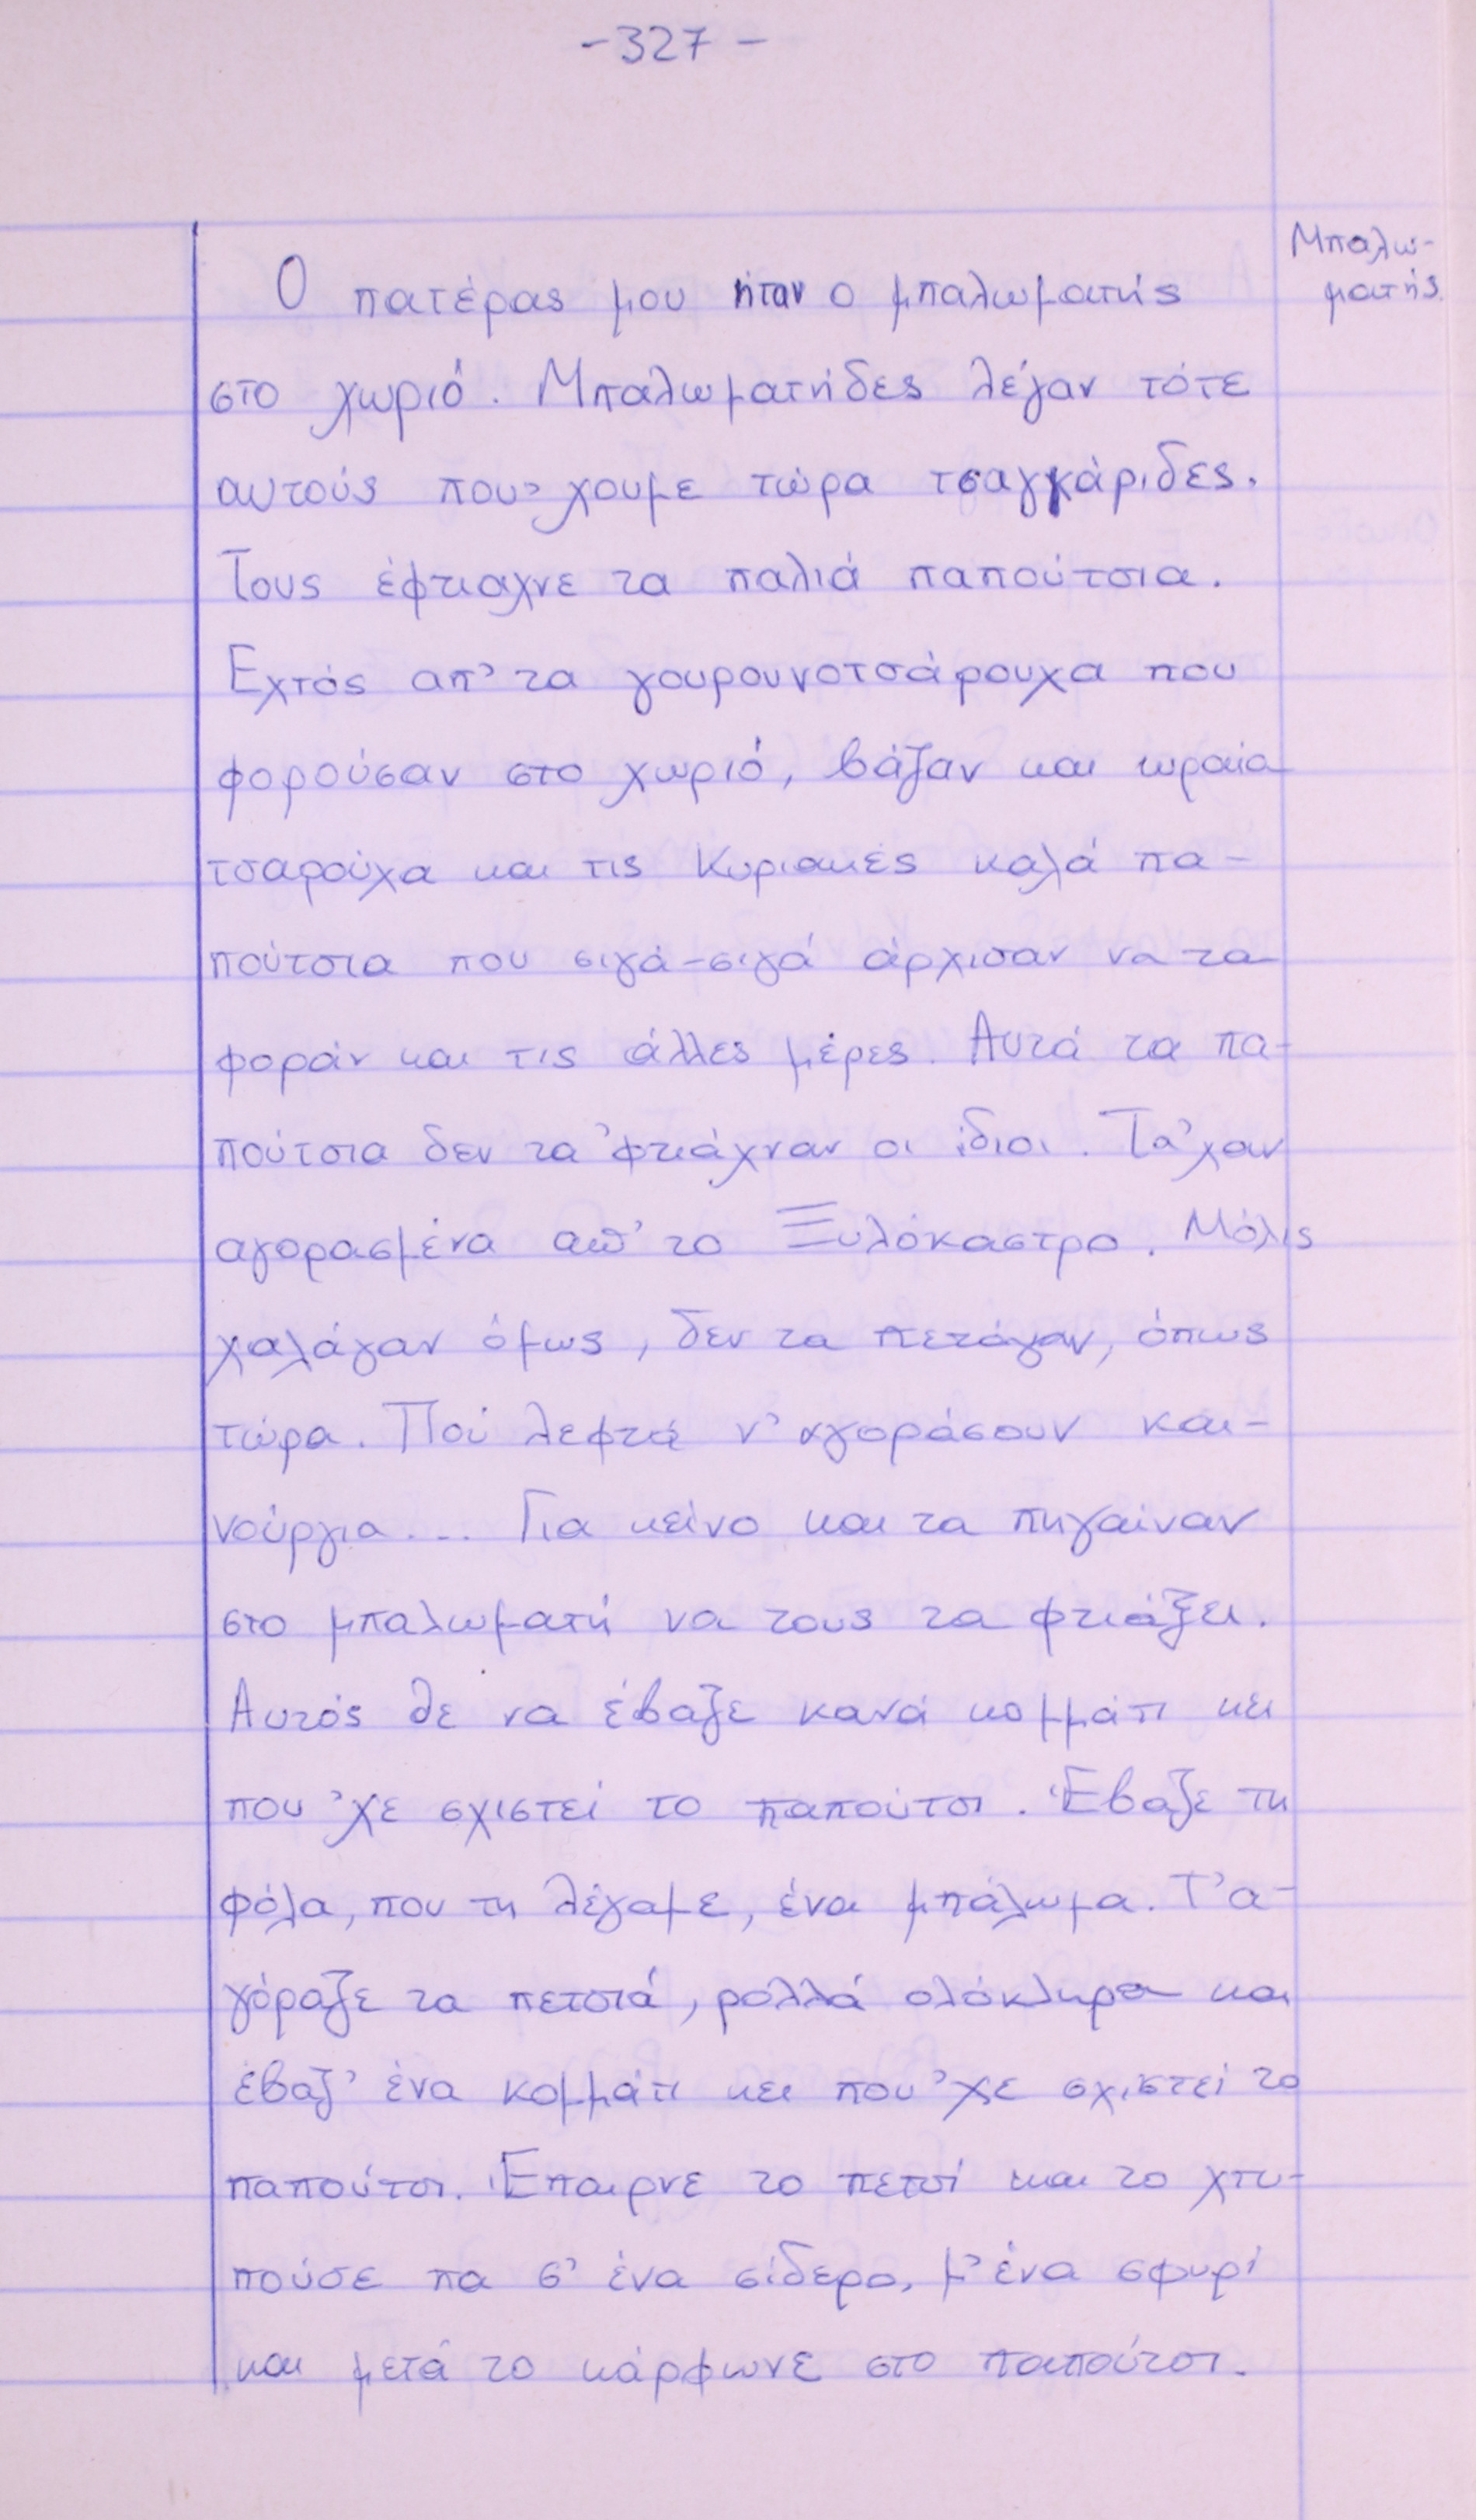 -327-
Μπαλω-
ματής.
Ο πατέρας μου ήταν ο μπαλωματής
στο χωριό. Μπαλωματήδες λέγαν τότε
αυτούς που' χουμε τώρα τσαγκάριδες.
Τους έφτιαχνε τα παλιά παπούτσια.
Εχτός απ' τα γουρουνοτσάρουχα που
φορούσαν στο χωριό, βάζαν και ωραία
τσαρούχα και τις Κυριακές καλά πα-
πούτσια που σιγά-σιγά άρχισαν να τα
φοράν και τις άλλες μέρες. Αυτά τα πα-
πούτσια δεν τα 'φτιάχναν οι ίδιοι. Τα'χαν
αγορασμένα απ' το Ξυλόκαστρο. Μόλις
χαλάγαν όμως, δεν τα πετάγαν, όπως
τώρα. Πού λεφτά ν' αγοράσουν και-
νούργια... Για κείνο και τα πηγαίναν
στο μπαλωματή να τους τα φτιάξει.
Αυτός θε να έβαζε κανά κομμάτι κει
που 'χε σχιστεί το παπούτσι. Έβαζε τη
φόλα, που τη λέγαμε, ένα μπάλωμα. Τ' α-
γόραζε τα πετσιά, ρολλά ολόκληρα και
έβαζ' ένα κομμάτι κει που 'χε σχιστεί το
παπούτσι. Έπαιρνε το πετσί και το χτυ-
πούσε πα σ' ένα σίδερο, μ' ένα σφυρί
και μετά το κάρφωνε στο παπούτσι.